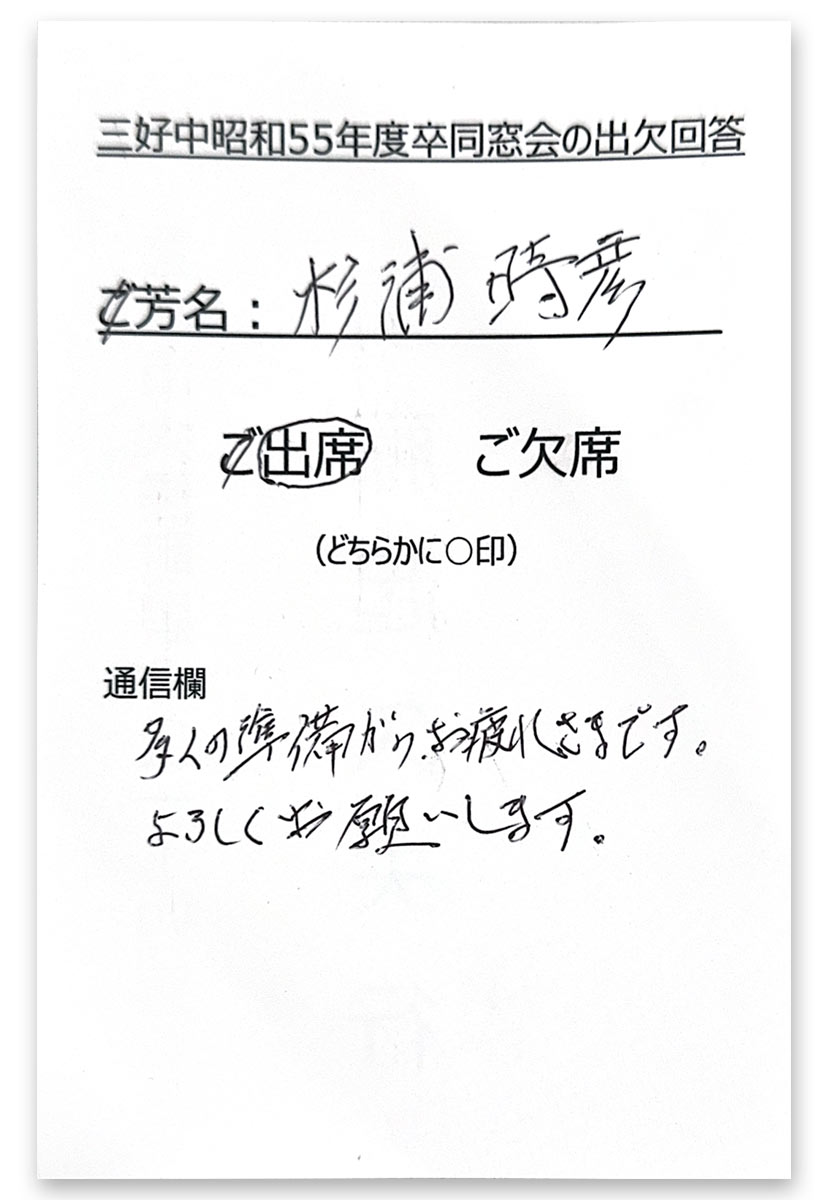 三好中昭和55年度卒同窓会の出欠回答
ご芳名：杉浦 時彦
ご出席 ご欠席
（どちらかに○印）
通信欄
多人の準備から、お疲れさまです。
よろしくお願いします。